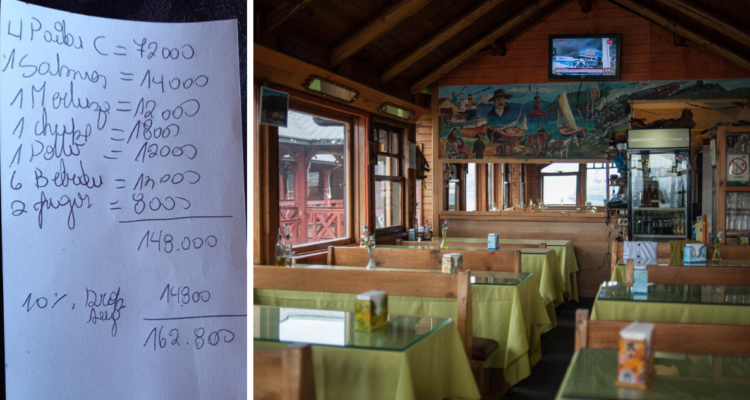 4 Paila C = 72000
1 Salmon = 14000
1 Merluza = 12000
1 chupe = 18000
1 Pollo = 12000
6 Bebidas = 12000
2 jugos = 8000
148.000
10%. Prop 14800
162.800